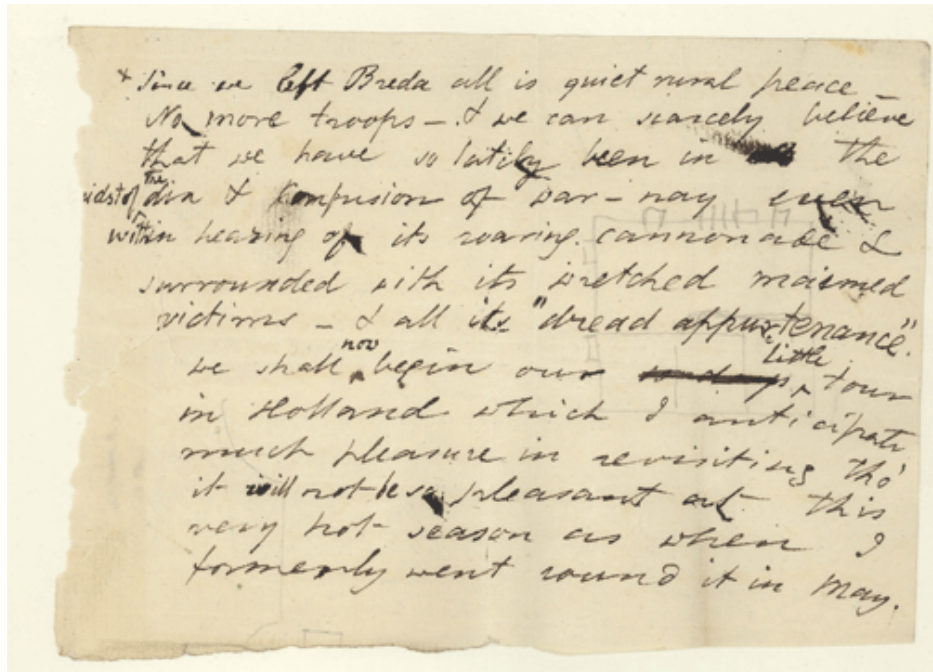 + Since we left Breda all is quiet rural peace –
No more troops – & we can scarcely believe
that we have so lately been in the
midst of the din & Konfusion of war – nay even
within hearing of its roaring cannonade &
surrounded with its wretched maimed
victims – & all its "dread appurtenance".
we shall now begin our little tour
in Holland which I anticipate
much pleasure in revisiting tho'
it will not be so pleasant at this
very hot season as when I
formerly went round it in May.